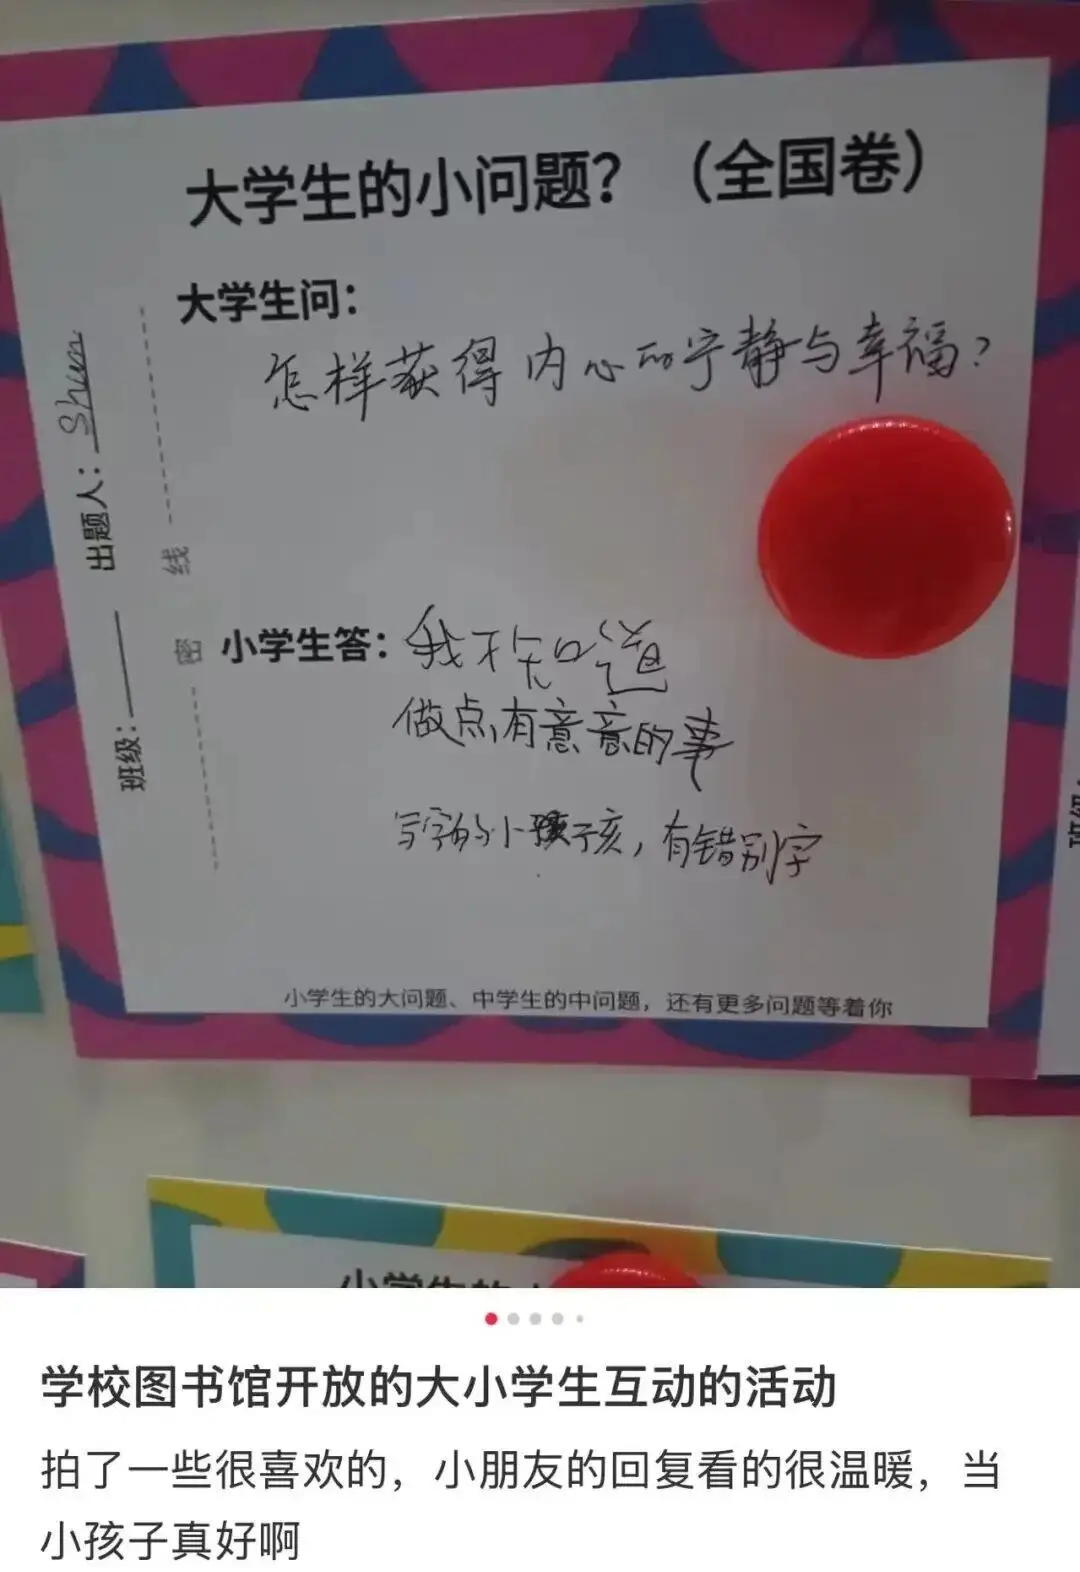 大学生的小问题？（全国卷）
大学生问：
怎样获得内心的宁静与幸福？
出题人：Shun
班级：
线
密
小学生答：我不知道
做点有意意的事
写字的小孩，有错别字
小学生的大问题、中学生的中问题，还有更多问题等着你
学校图书馆开放的大小学生互动的活动
拍了一些很喜欢的，小朋友的回复看的很温暖，当
小孩子真好啊